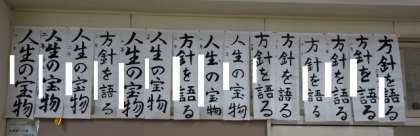 方針を語る
方針を語る
方針を語る
方針を語る
方針を語る
方針を語る
人生の宝物
人生の宝物
方針を語る
人生の宝物
人生の宝物
方針を語る
人生の宝物
人生の宝物
人生の宝物